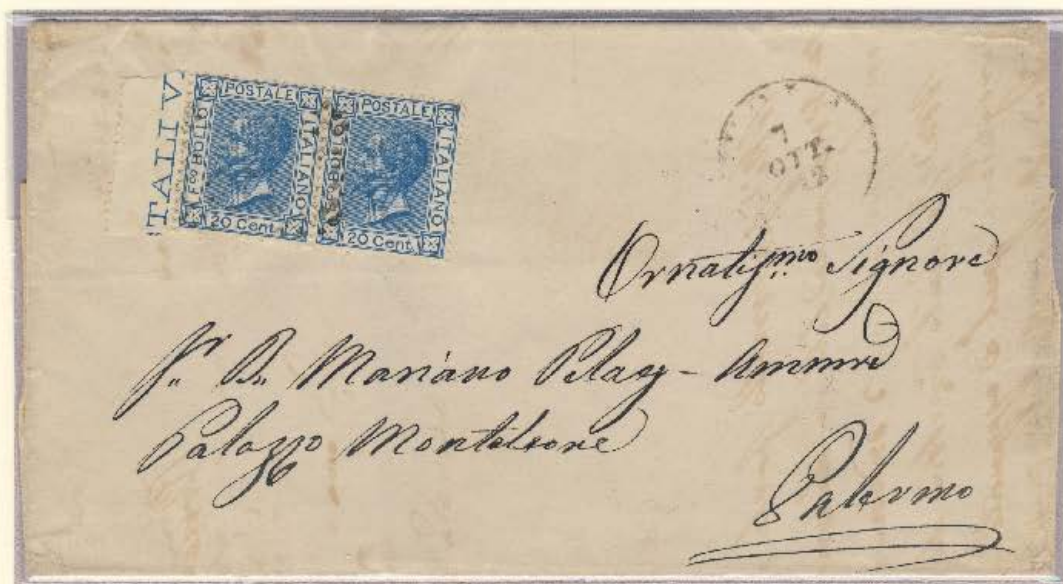 TALI V
POSTALE
Fco BOLLO
ITALIANO
20 Cent.
POSTALE
Fco BOLLO
ITALIANO
20 Cent.
7
OTT.
Ornatissmo Signore
Sr. B. Mariano
Palazzo Monteleone
Palermo